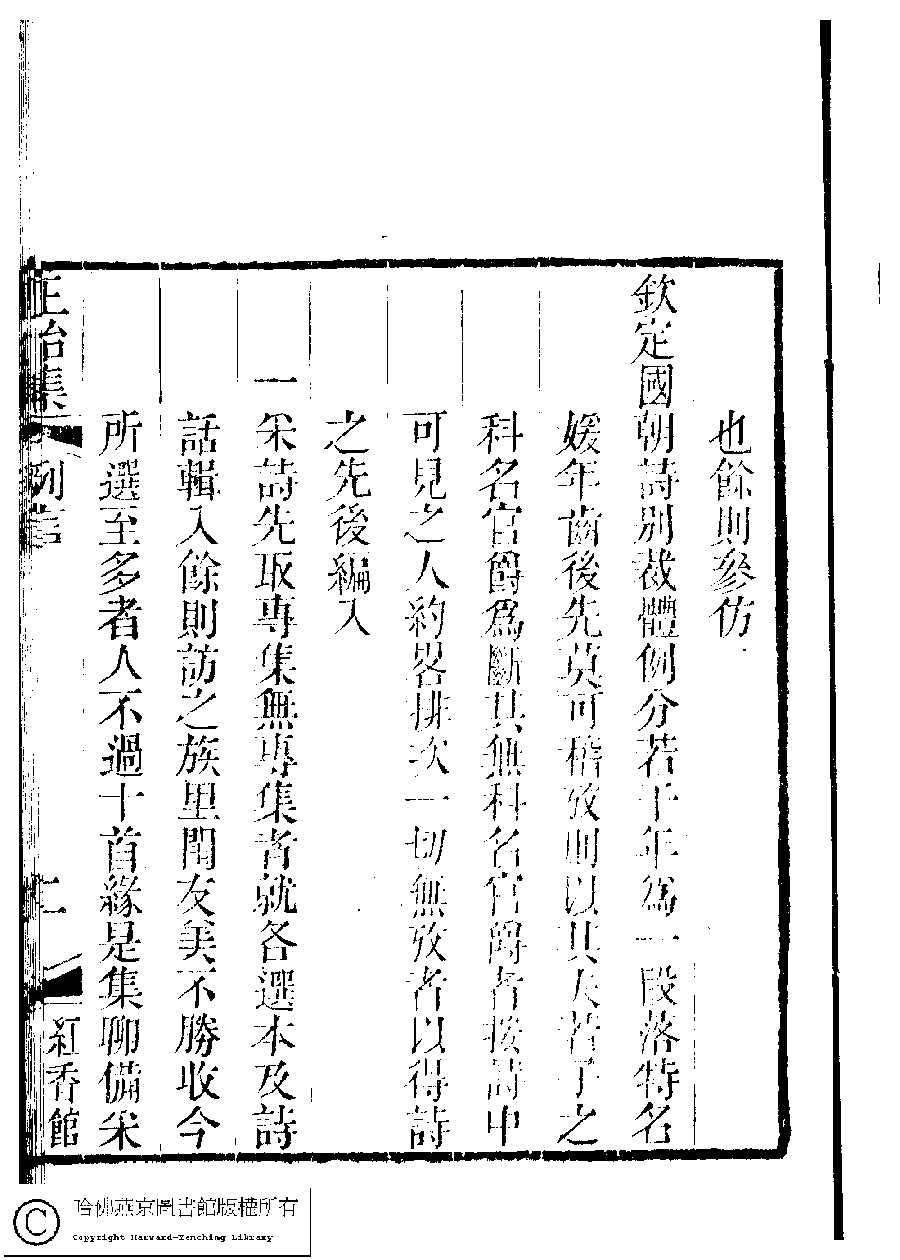 也餘則參仿
欽定國朝詩别裁體例分若干年為一段落特名
媛年齒後先莫可稽攷則以其夫若子之
科名官爵爲斷其無科名官爵者按詩中
可見之人約畧排次一切無攷者以得詩
之先後編入
一采詩先取專集無專集者就各選本及詩
話輯入餘則訪之族里閨友美不勝收今
所選至多者人不過十首緣是集聊備采
正始集 例言 二 紅香館
哈佛燕京圖書館版權所有
Copyright Harvard-Yenching Library